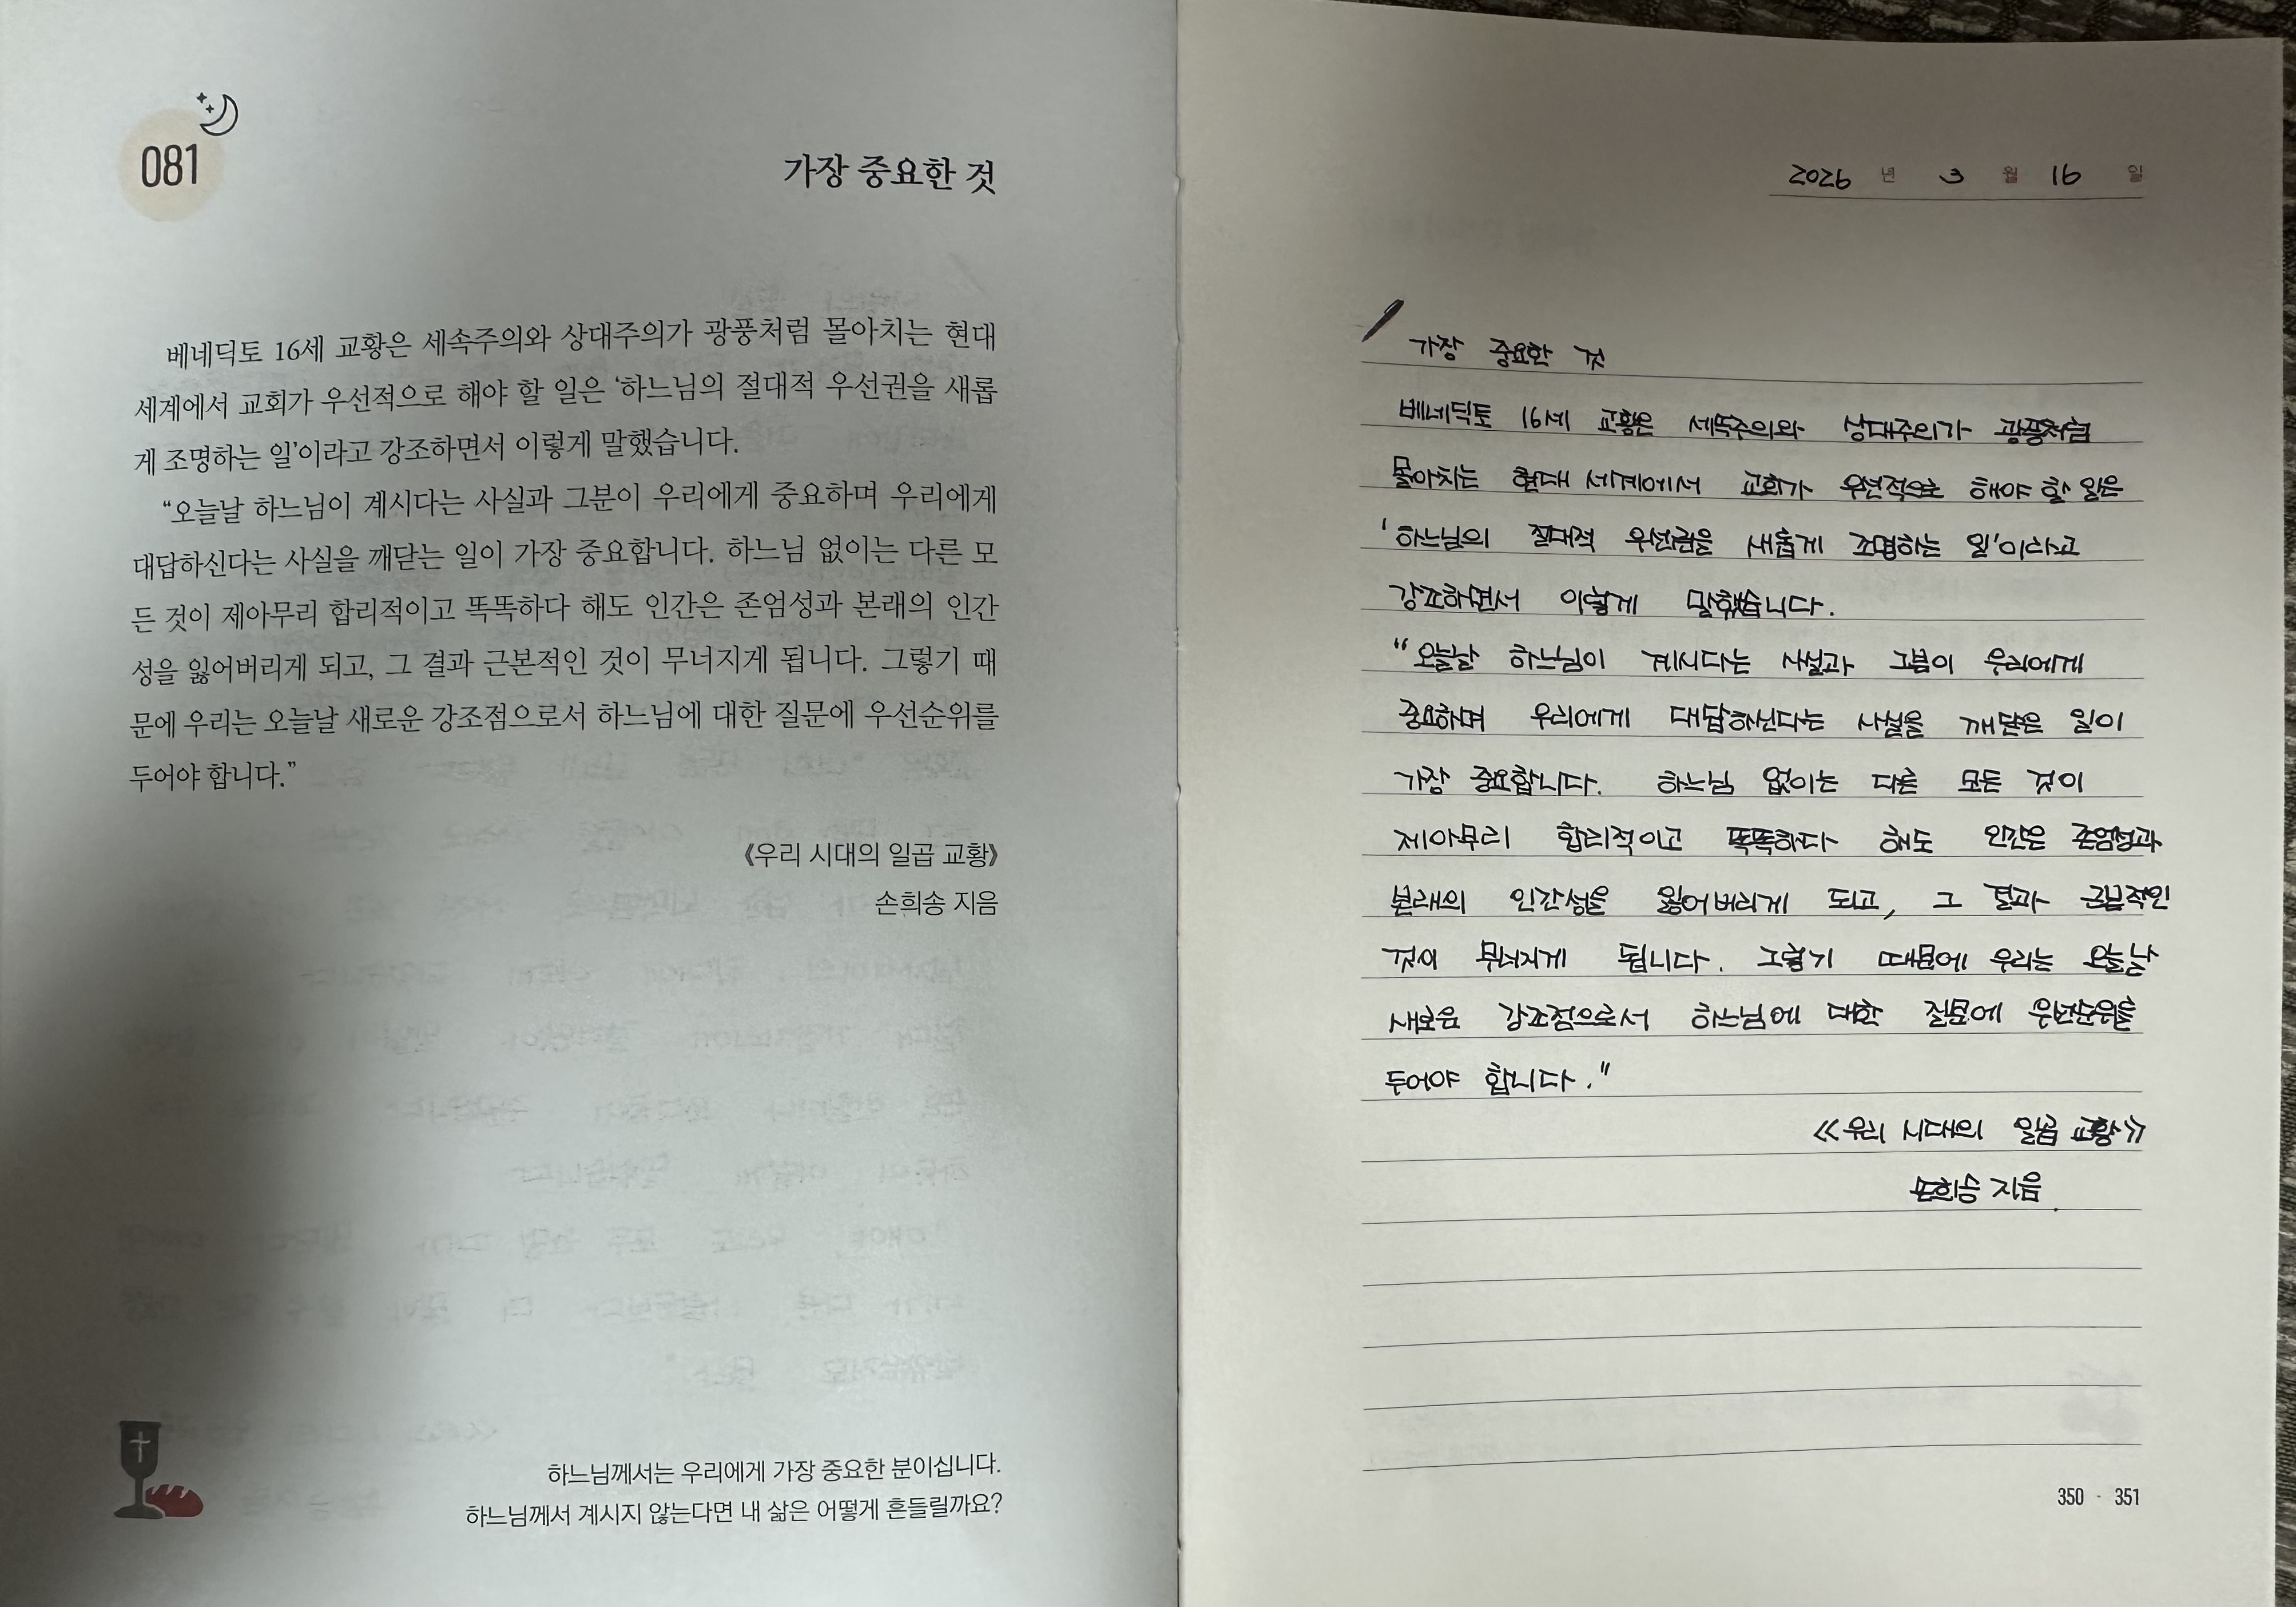 081
가장 중요한 것
베네딕토 16세 교황은 세속주의와 상대주의가 광풍처럼 몰아치는 현대
세계에서 교회가 우선적으로 해야 할 일은 ‘하느님의 절대적 우선권을 새롭
게 조명하는 일’이라고 강조하면서 이렇게 말했습니다.
“오늘날 하느님이 계시다는 사실과 그분이 우리에게 중요하며 우리에게
대답하신다는 사실을 깨닫는 일이 가장 중요합니다. 하느님 없이는 다른 모
든 것이 제아무리 합리적이고 똑똑하다 해도 인간은 존엄성과 본래의 인간
성을 잃어버리게 되고, 그 결과 근본적인 것이 무너지게 됩니다. 그렇기 때
문에 우리는 오늘날 새로운 강조점으로서 하느님에 대한 질문에 우선순위를
두어야 합니다.”
《우리 시대의 일곱 교황》
손희송 지음
하느님께서는 우리에게 가장 중요한 분이십니다.
하느님께서 계시지 않는다면 내 삶은 어떻게 흔들릴까요?
2026 년 3 월 16 일
가장 중요한 것
베네딕토 16세 교황은 세속주의와 상대주의가 광풍처럼
몰아치는 현대 세계에서 교회가 우선적으로 해야 할 일은
'하느님의 절대적 우선권을 새롭게 조명하는 일'이라고
강조하면서 이렇게 말했습니다.
"오늘날 하느님이 계시다는 사실과 그분이 우리에게
중요하며 우리에게 대답하신다는 사실을 깨닫은 일이
가장 중요합니다. 하느님 없이는 다른 모든 것이
제아무리 합리적이고 똑똑하다 해도 인간은 존엄성과
본래의 인간성을 잃어버리게 되고, 그 결과 근본적인
것이 무너지게 됩니다. 그렇기 때문에 우리는 오늘날
새로운 강조점으로서 하느님에 대한 질문에 우선순위를
두어야 합니다."
《우리 시대의 일곱 교황》
손희송 지음.
350 - 351